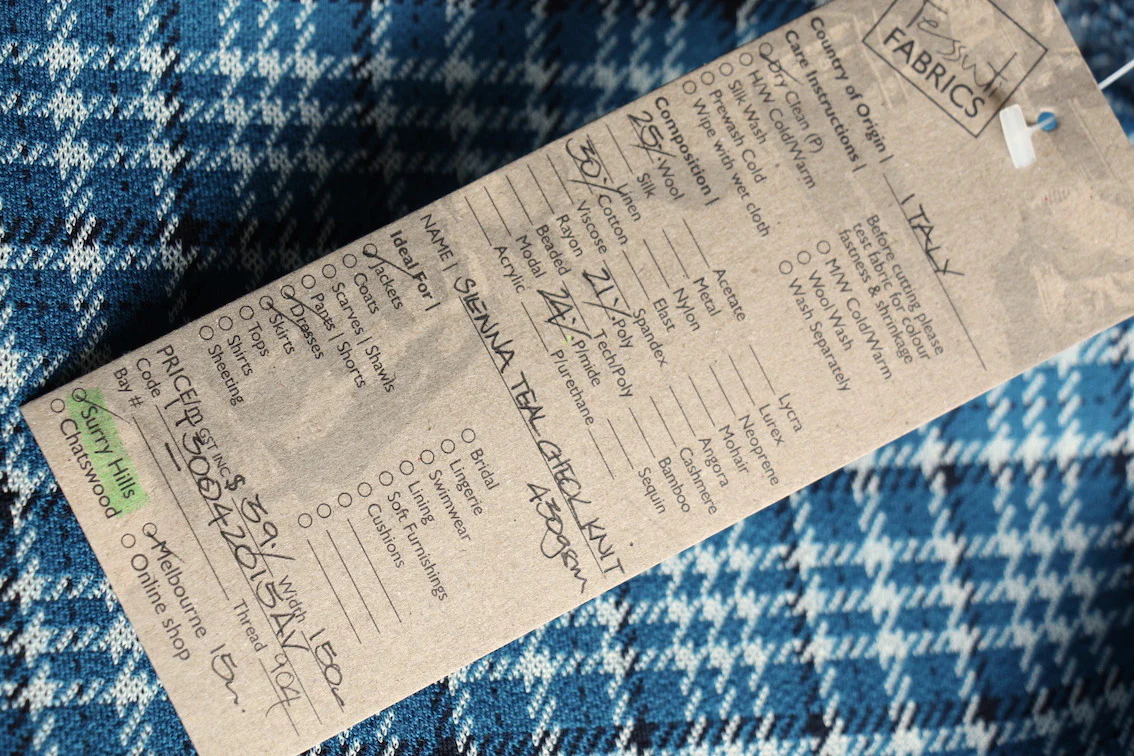 Tessuti
FABRICS
Country of Origin | ITALY
Care Instructions |
Dry Clean (P)
H/W Cold/Warm
Silk Wash
Prewash Cold
Wipe with wet cloth
Before cutting please
test fabric for colour
fastness & shrinkage
M/W Cold/Warm
Wool Wash
Wash Separately
Composition |
25% Wool
Silk
Linen
30% Cotton
Viscose
Rayon
Beaded
Modal
Acrylic
Acetate
Metal
Nylon
Elast
Spandex
21% Poly
Tech/Poly
24% P/mide
P/urethane
Lycra
Lurex
Neoprene
Mohair
Angora
Cashmere
Bamboo
Sequin
NAME | SIENNA TEAL CHECK KNIT
430gsm
Ideal For |
Jackets
Coats
Scarves | Shawls
Pants | Shorts
Dresses
Skirts
Tops
Shirts
Sheeting
Bridal
Lingerie
Swimwear
Lining
Soft Furnishings
Cushions
PRICE/m GST INC $ 39./ Width 150c
Code
Thread 904
Bay #
Surry Hills
Chatswood
Melbourne 15m.
Online shop